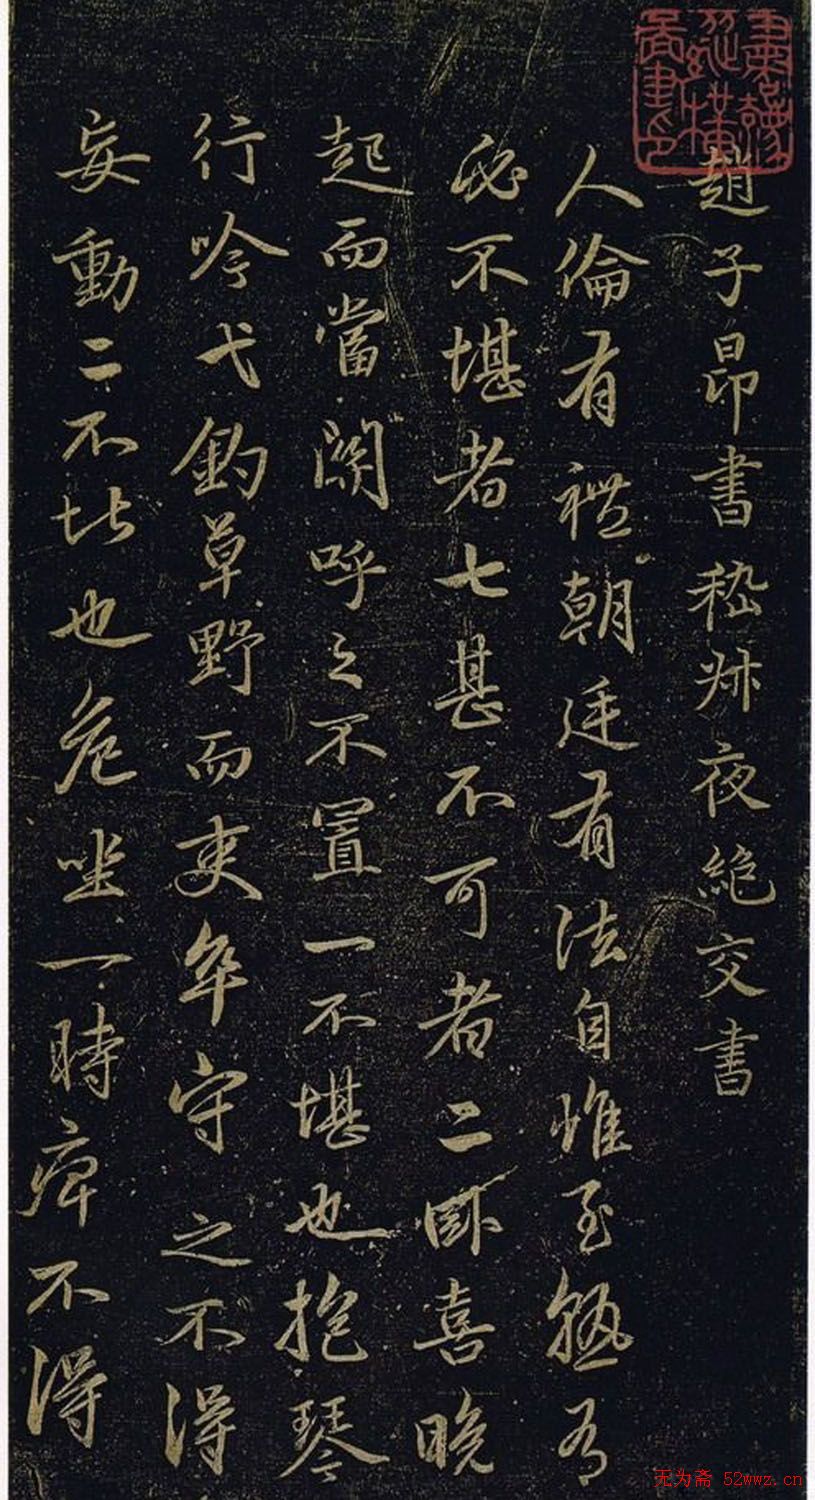 趙子昂書嵇叔夜絶交書
人倫有禮朝廷有法自惟至熟有
必不堪者七甚不可者二卧喜晚
起而當關呼之不置一不堪也抱琴
行吟弋釣草野而吏卒守之不得
妄動二不堪也危坐一時痹不得
无为斋 52wwz.cn